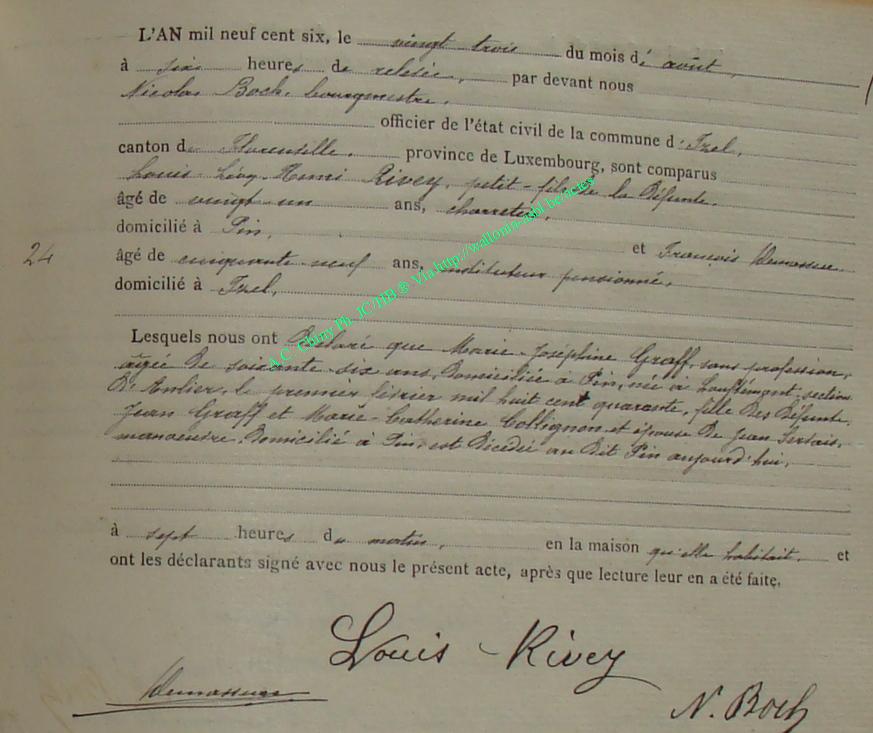 L'AN mil neuf cent six, le vingt trois du mois dé août,
à six heures de relevée, par devant nous
Nicolas Boch, bourgmestre,
officier de l'état civil de la commune d'Izel,
canton de Florenville, province de Luxembourg, sont comparus
Louis Henri Rivey, petit-fils de la défunte,
âgé de vingt un ans, charretier,
domicilié à Pin, et François
24
âgé de cinquante neuf ans, instituteur pensionné,
domicilié à Izel,
Lesquels nous ont Déclaré que Marie-Joséphine Graff, sans profession,
âgée de soixante-six ans, domiciliée à Pin, née à section
D'Anlier, le premier février mil huit cent quarante, fille des défunts
Jean Graff et Marie-Catherine Collignon, et épouse de Jean Servais,
manoeuvre, domicilié à Pin, est décédée au dit Pin aujourd'hui,
à sept heures du matin, en la maison qu'elle habitait, et
ont les déclarants signé avec nous le présent acte, après que lecture leur en a été faite.
Louis Rivey
N. Boch
A.C. Chiny Ph. JC/HB ® Via http://wallonia-asbl.be/actes